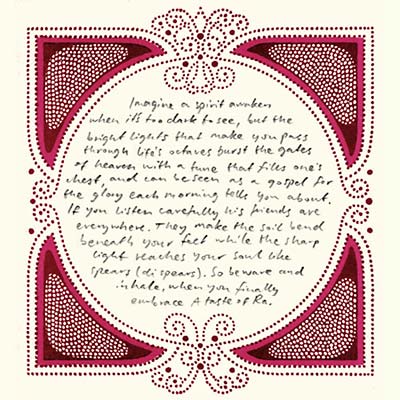 Imagine a spirit awaken
when it's too dark to see, but the
bright lights that make you pass
through life's octaves burst the gates
of heaven with a tune that fills one's
chest, and can be seen as a gospel for
the glory each morning tells you about.
If you listen carefully his friends are
everywhere. They make the soil bend
beneath your feet while the sharp
light reaches your soul like
spears (di spears). So beware and
inhale, when you finally
embrace A taste of Ra.